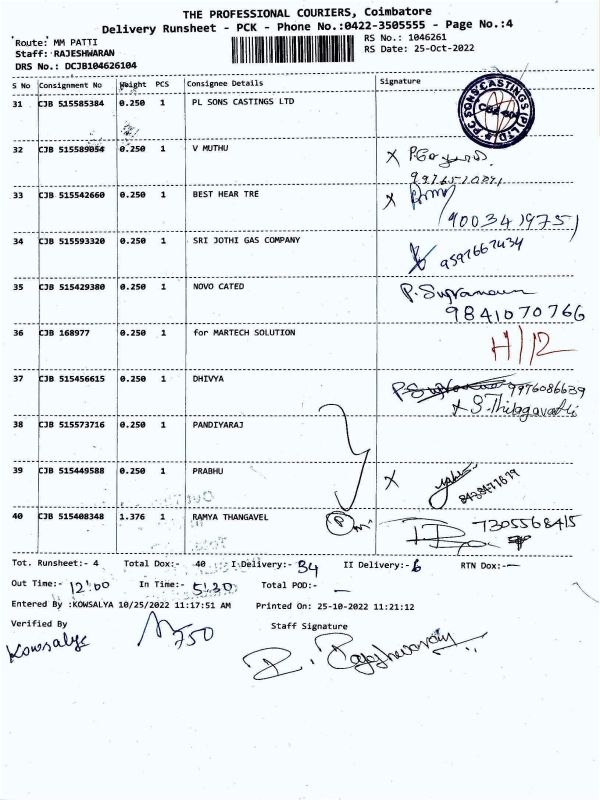 THE PROFESSIONAL COURIERS, Coimbatore
Delivery Runsheet - PCK - Phone No.:0422-3505555 - Page No.:4
Route: MM PATTI
RS No.: 1046261
Staff: RAJESHWARAN
RS Date: 25-Oct-2022
DRS No.: DCJB104626104
S No Consignment No Weight PCS Consignee Details Signature
31 CJB 515585384 0.250 1 PL SONS CASTINGS LTD
PL SONS CASTINGS (P) LTD
32 CJB 515589054 0.250 1 V MUTHU X
33 CJB 515542660 0.250 1 BEST HEAR TRE X
9003419751
34 CJB 515593320 0.250 1 SRI JOTHI GAS COMPANY
9597667434
35 CJB 515429380 0.250 1 NOVO CATED
9841070766
36 CJB 168977 0.250 1 for MARTECH SOLUTION
H/12
37 CJB 515456615 0.250 1 DHIVYA 9976086639
X S. Thilagavathi
38 CJB 515573716 0.250 1 PANDIYARAJ
39 CJB 515449588 0.250 1 PRABHU X
40 CJB 515408348 1.376 1 RAMYA THANGAVEL P 7305568415
Tot. Runsheet:- 4 Total Dox:- 40 I Delivery:- 34 II Delivery:- 6 RTN Dox:- —
Out Time:- 12:00 In Time:- 5:30 Total POD:- —
Entered By :KOWSALYA 10/25/2022 11:17:51 AM Printed On: 25-10-2022 11:21:12
Verified By Staff Signature
Kowsalya 750 R. Rajeshwaran